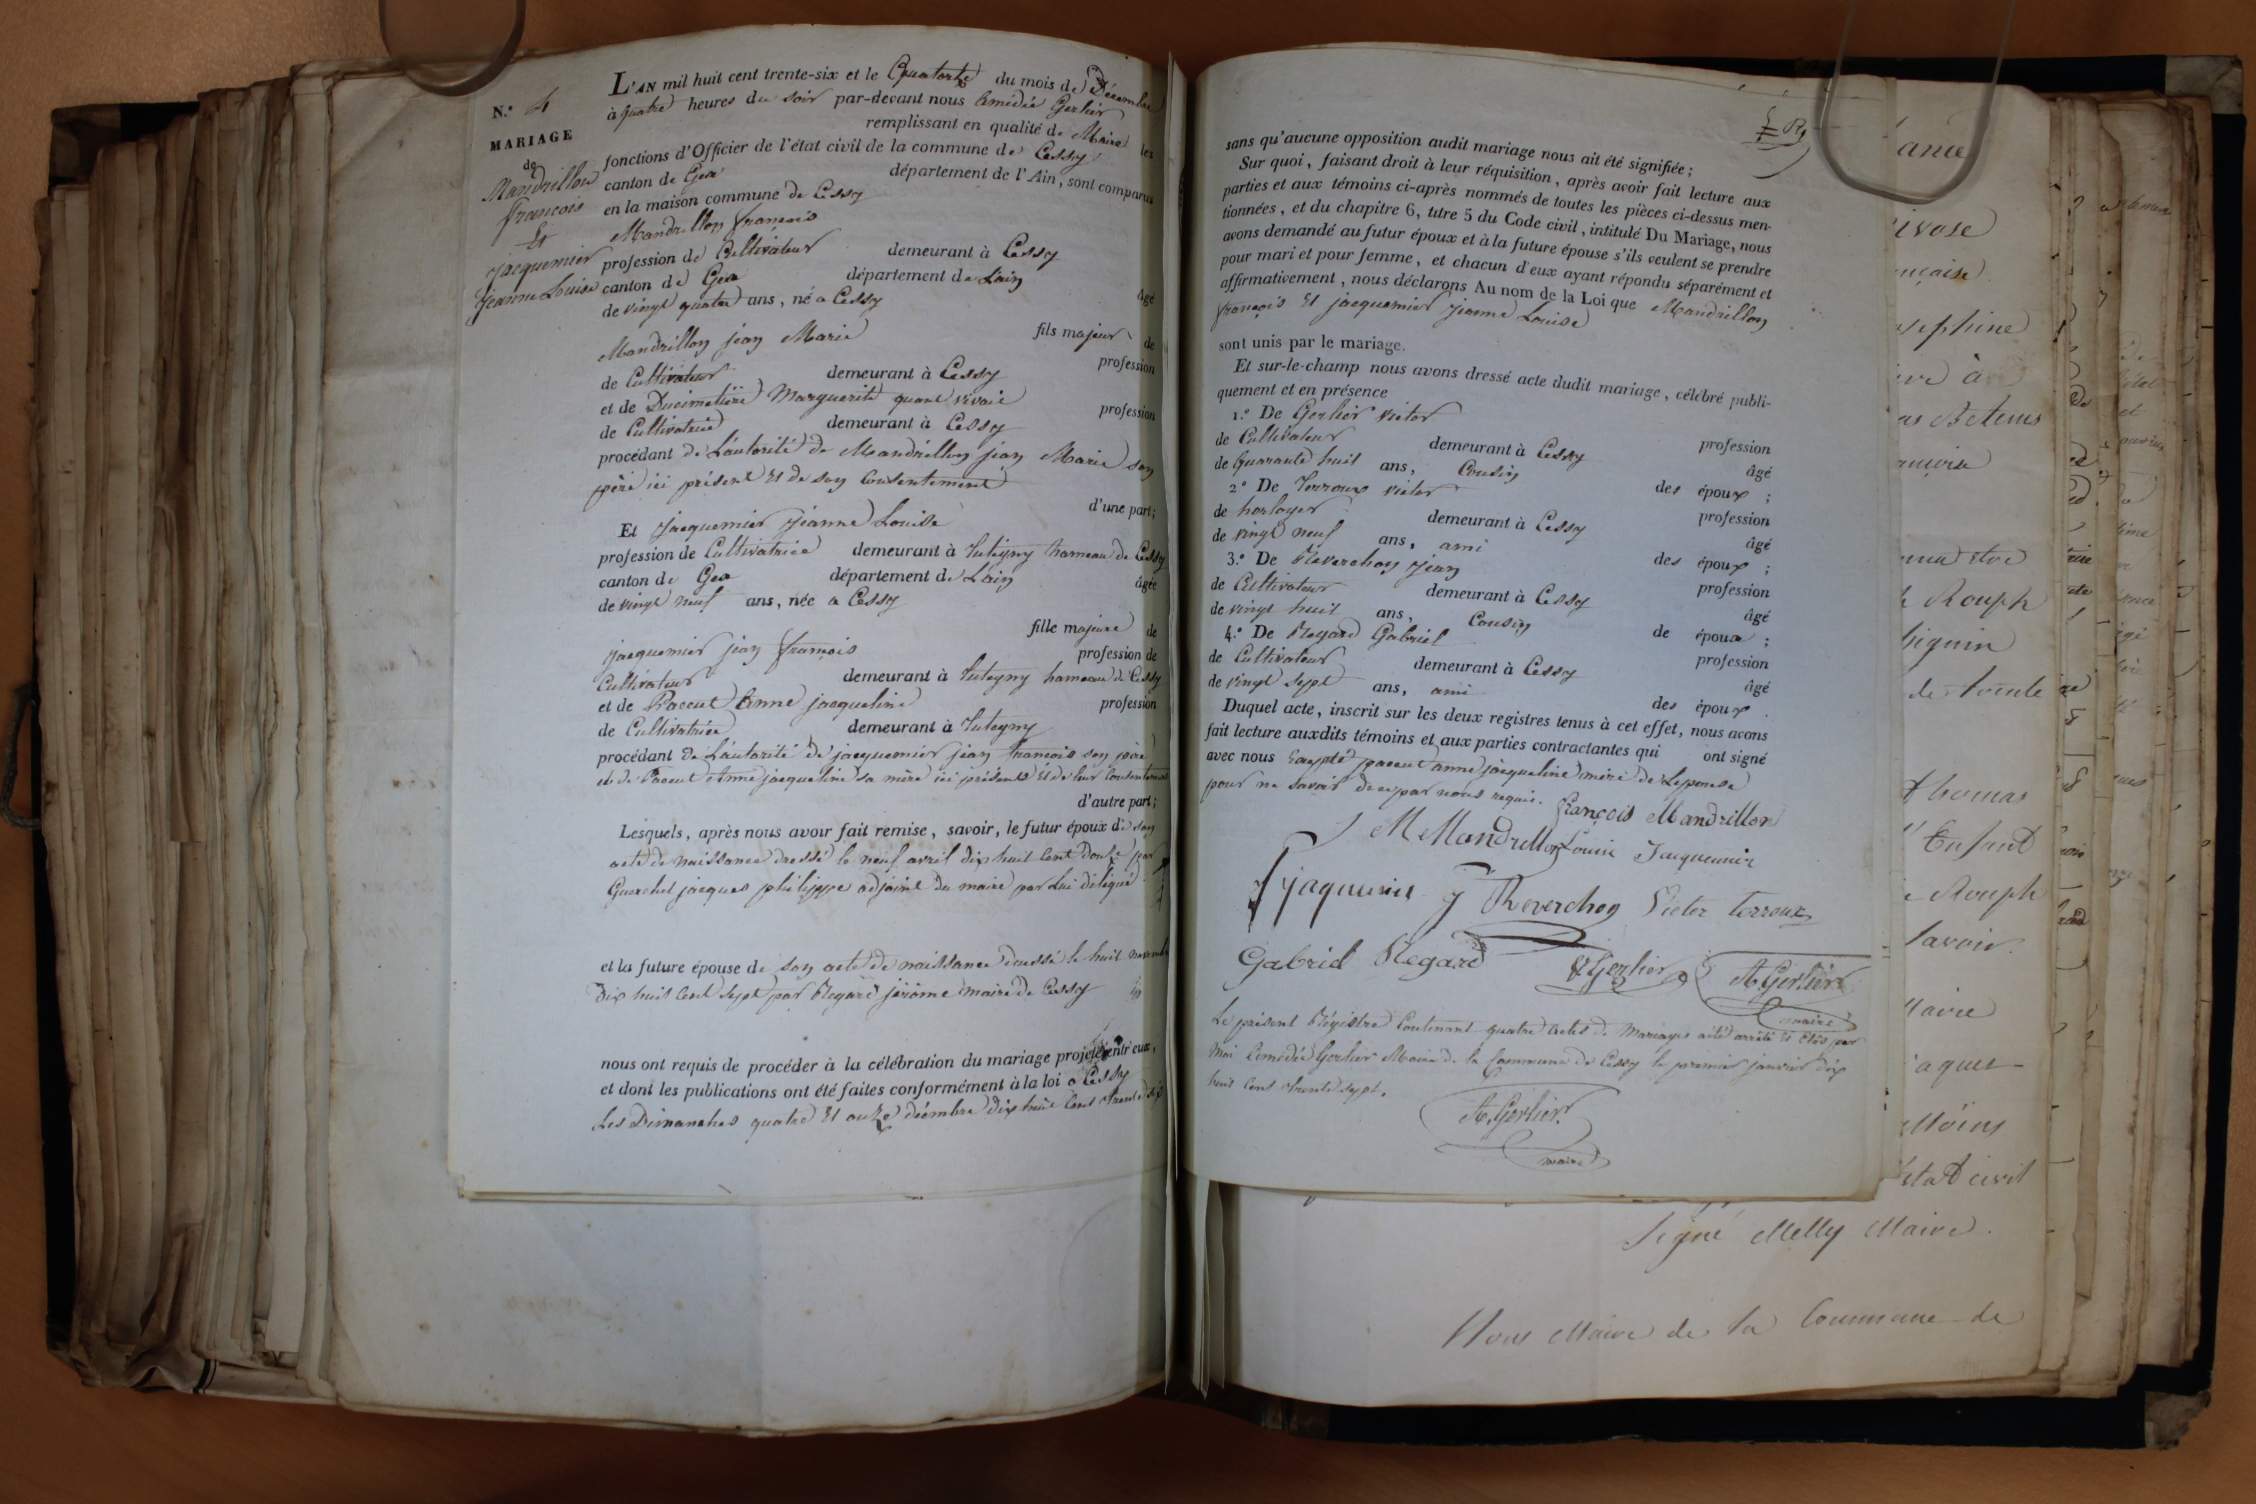 N.° 4
MARIAGE
de
Mandrillon
françois
Et
jacquemier
jeanne Louise
L'AN mil huit cent trente-six et le Quatorze du mois de Décembre
à quatre heures du soir par-devant nous Amédée Gerlier
remplissant en qualité de Maire les
fonctions d'Officier de l'état civil de la commune de Cessy
canton de Gex département de l'Ain, sont comparus
en la maison commune de Cessy
Mandrillon françois
profession de Cultivateur demeurant à Cessy
canton de Gex département de Lain
âgé
de vingt quatre ans, né a Cessy
fils majeur de
Mandrillon jean Marie
profession
de Cultivateur demeurant à Cessy
et de Ducimetière Marguerite quant vivait
profession
de Cultivatrice demeurant à Cessy
procédant de Lautorité de Mandrillon jean Marie son
père ici présent Et de son Consentement
d'une part;
Et jacquemier jeanne Louise
profession de Cultivatrice demeurant à Tutegny hameau de Cessy
canton de Gex département de Lain
âgée
de vingt neuf ans, née a Cessy
fille majeure de
jacquemier jean françois
profession de
Cultivateur demeurant à Tutegny hameau de Cessy
et de Paccut Anne jacqueline
profession
de Cultivatrice demeurant à Tutegny
procédant de Lautorité de jacquemier jean francois son père
et de Paccut Anne jacqueline sa mère ici présents Et de leur Consentement
d'autre part;
Lesquels, après nous avoir fait remise, savoir, le futur époux de son
acte de naissance dressé le neuf avril dix huit Cent douze par
jacques philippe adjoint du maire par Lui délégué
et la future épouse de son acte de naissance dressé le huit novembre
dix huit Cent sept par Regard jérôme maire de Cessy
nous ont requis de procéder à la célébration du mariage projeté entr'eux,
et dont les publications ont été faites conformément à la loi a Cessy
Les Dimanches quatre Et onze décembre dix huit Cent trente six
sans qu'aucune opposition audit mariage nous ait été signifiée;
Sur quoi, faisant droit à leur réquisition, après avoir fait lecture aux
parties et aux témoins ci-après nommés de toutes les pièces ci-dessus men-
tionnées, et du chapitre 6, titre 5 du Code civil, intitulé Du Mariage, nous
avons demandé au futur époux et à la future épouse s'ils veulent se prendre
pour mari et pour femme, et chacun d'eux ayant répondu séparément et
affirmativement, nous déclarons Au nom de la Loi que Mandrillon
françois Et jacquemier jeanne Louise
sont unis par le mariage.
Et sur-le-champ nous avons dressé acte dudit mariage, célébré publi-
quement et en présence
1.° De Gerlier victor
profession
de Cultivateur demeurant à Cessy
âgé
de Quarante huit ans, Cousin
des époux;
2° De Terroux victor
profession
de horloger demeurant à Cessy
âgé
de vingt neuf ans, ami
des époux;
3.° De Reverchon jean
profession
de Cultivateur demeurant à Cessy
âgé
de vingt huit ans, Cousin
de époux;
4.° De Regard Gabriel
profession
de Cultivateur demeurant à Cessy
âgé
de vingt sept ans, ami
des époux.
Duquel acte, inscrit sur les deux registres tenus à cet effet, nous avons
fait lecture auxdits témoins et aux parties contractantes qui ont signé
avec nous Excepté paccut anne jacqueline mère de Lepouse
pour ne savoir de ce par nous requis.
françois Mandrillon
J M Mandrillon Louise Jacquemier
f jaquemier J Reverchon Victor terroux
Gabriel Regard V Gerlier A Gerlier
maire
Le présent Régistre Contenant quatre actes de Mariages a été arrêté Et Clos par
Moi Amédée Gerlier Maire de la Commune de Cessy le premier janvier dix
huit Cent trente sept.
A. Gerlier
maire
ivose
sephine
Rouph
de toute
thomas
Enfant
Rouph
savoir.
Maire
aques
état civil
Signé Melly Maire.
Nous Maire de la Commune de